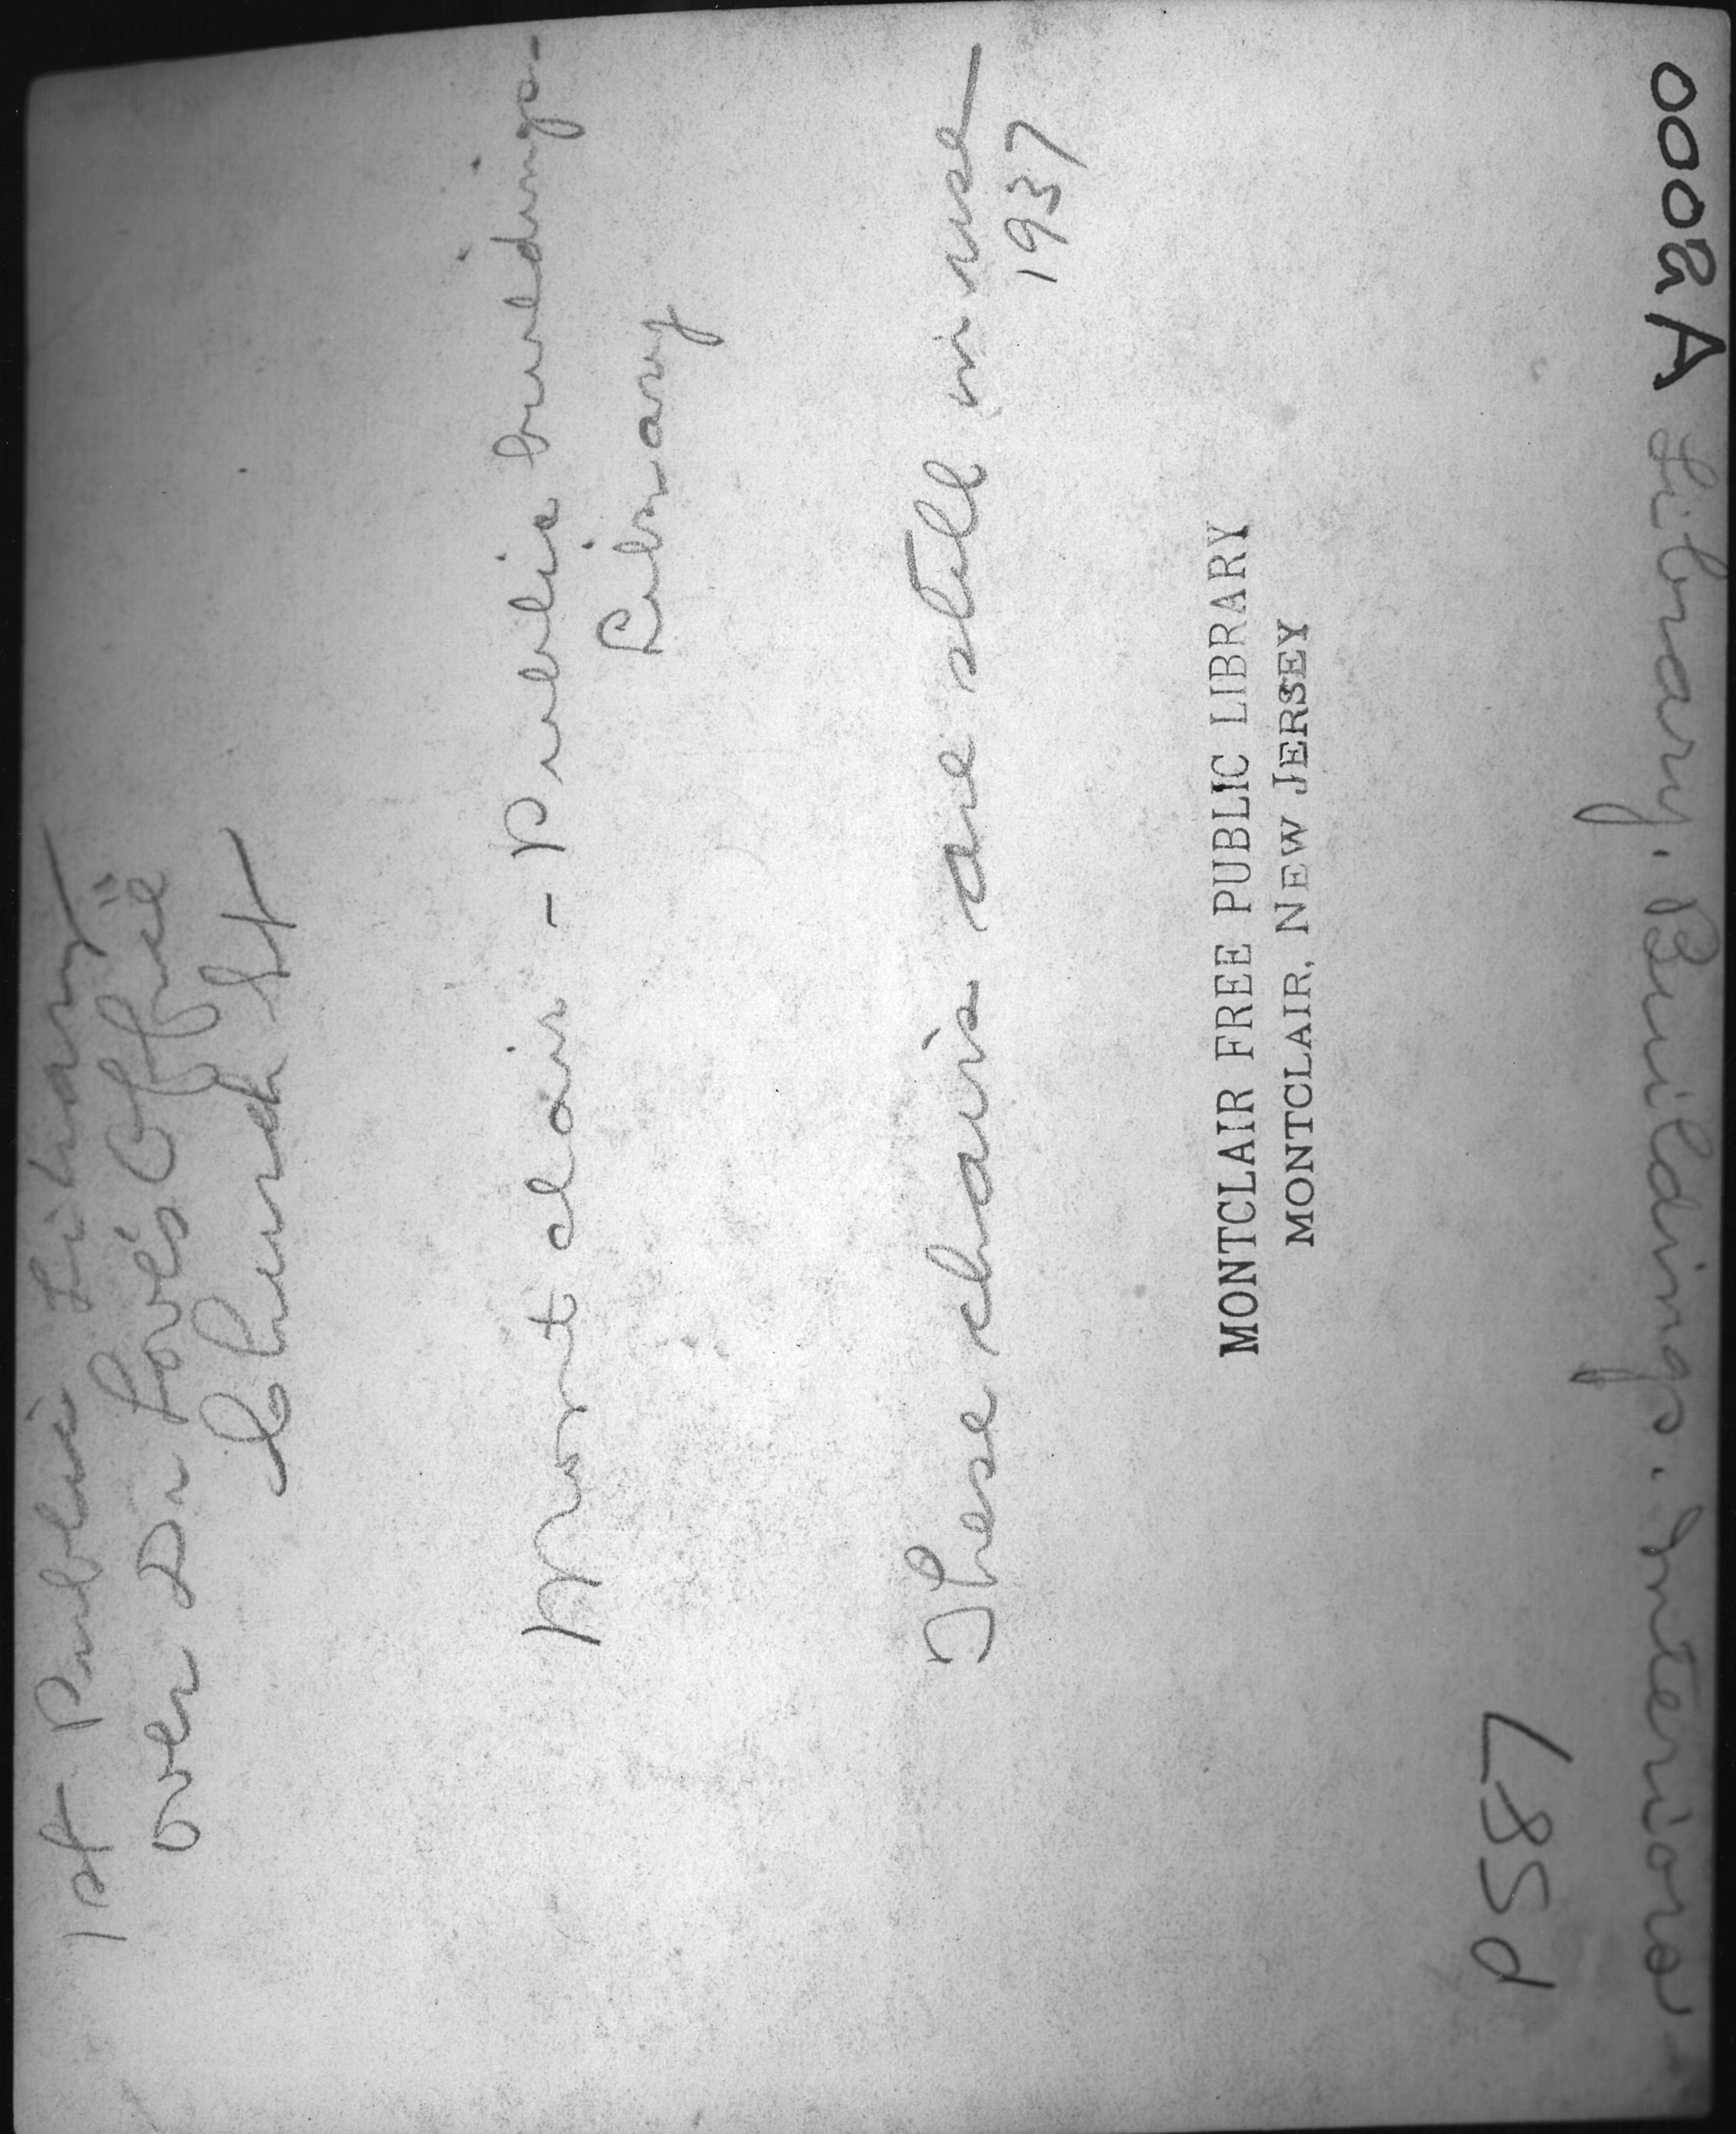 1st Public Library
over Dr Love's Office
Church St
Montclair - Public buildings-
Library
These chairs are still in use
1937
MONTCLAIR FREE PUBLIC LIBRARY
MONTCLAIR, NEW JERSEY
P587
Library. Buildings. Interiors